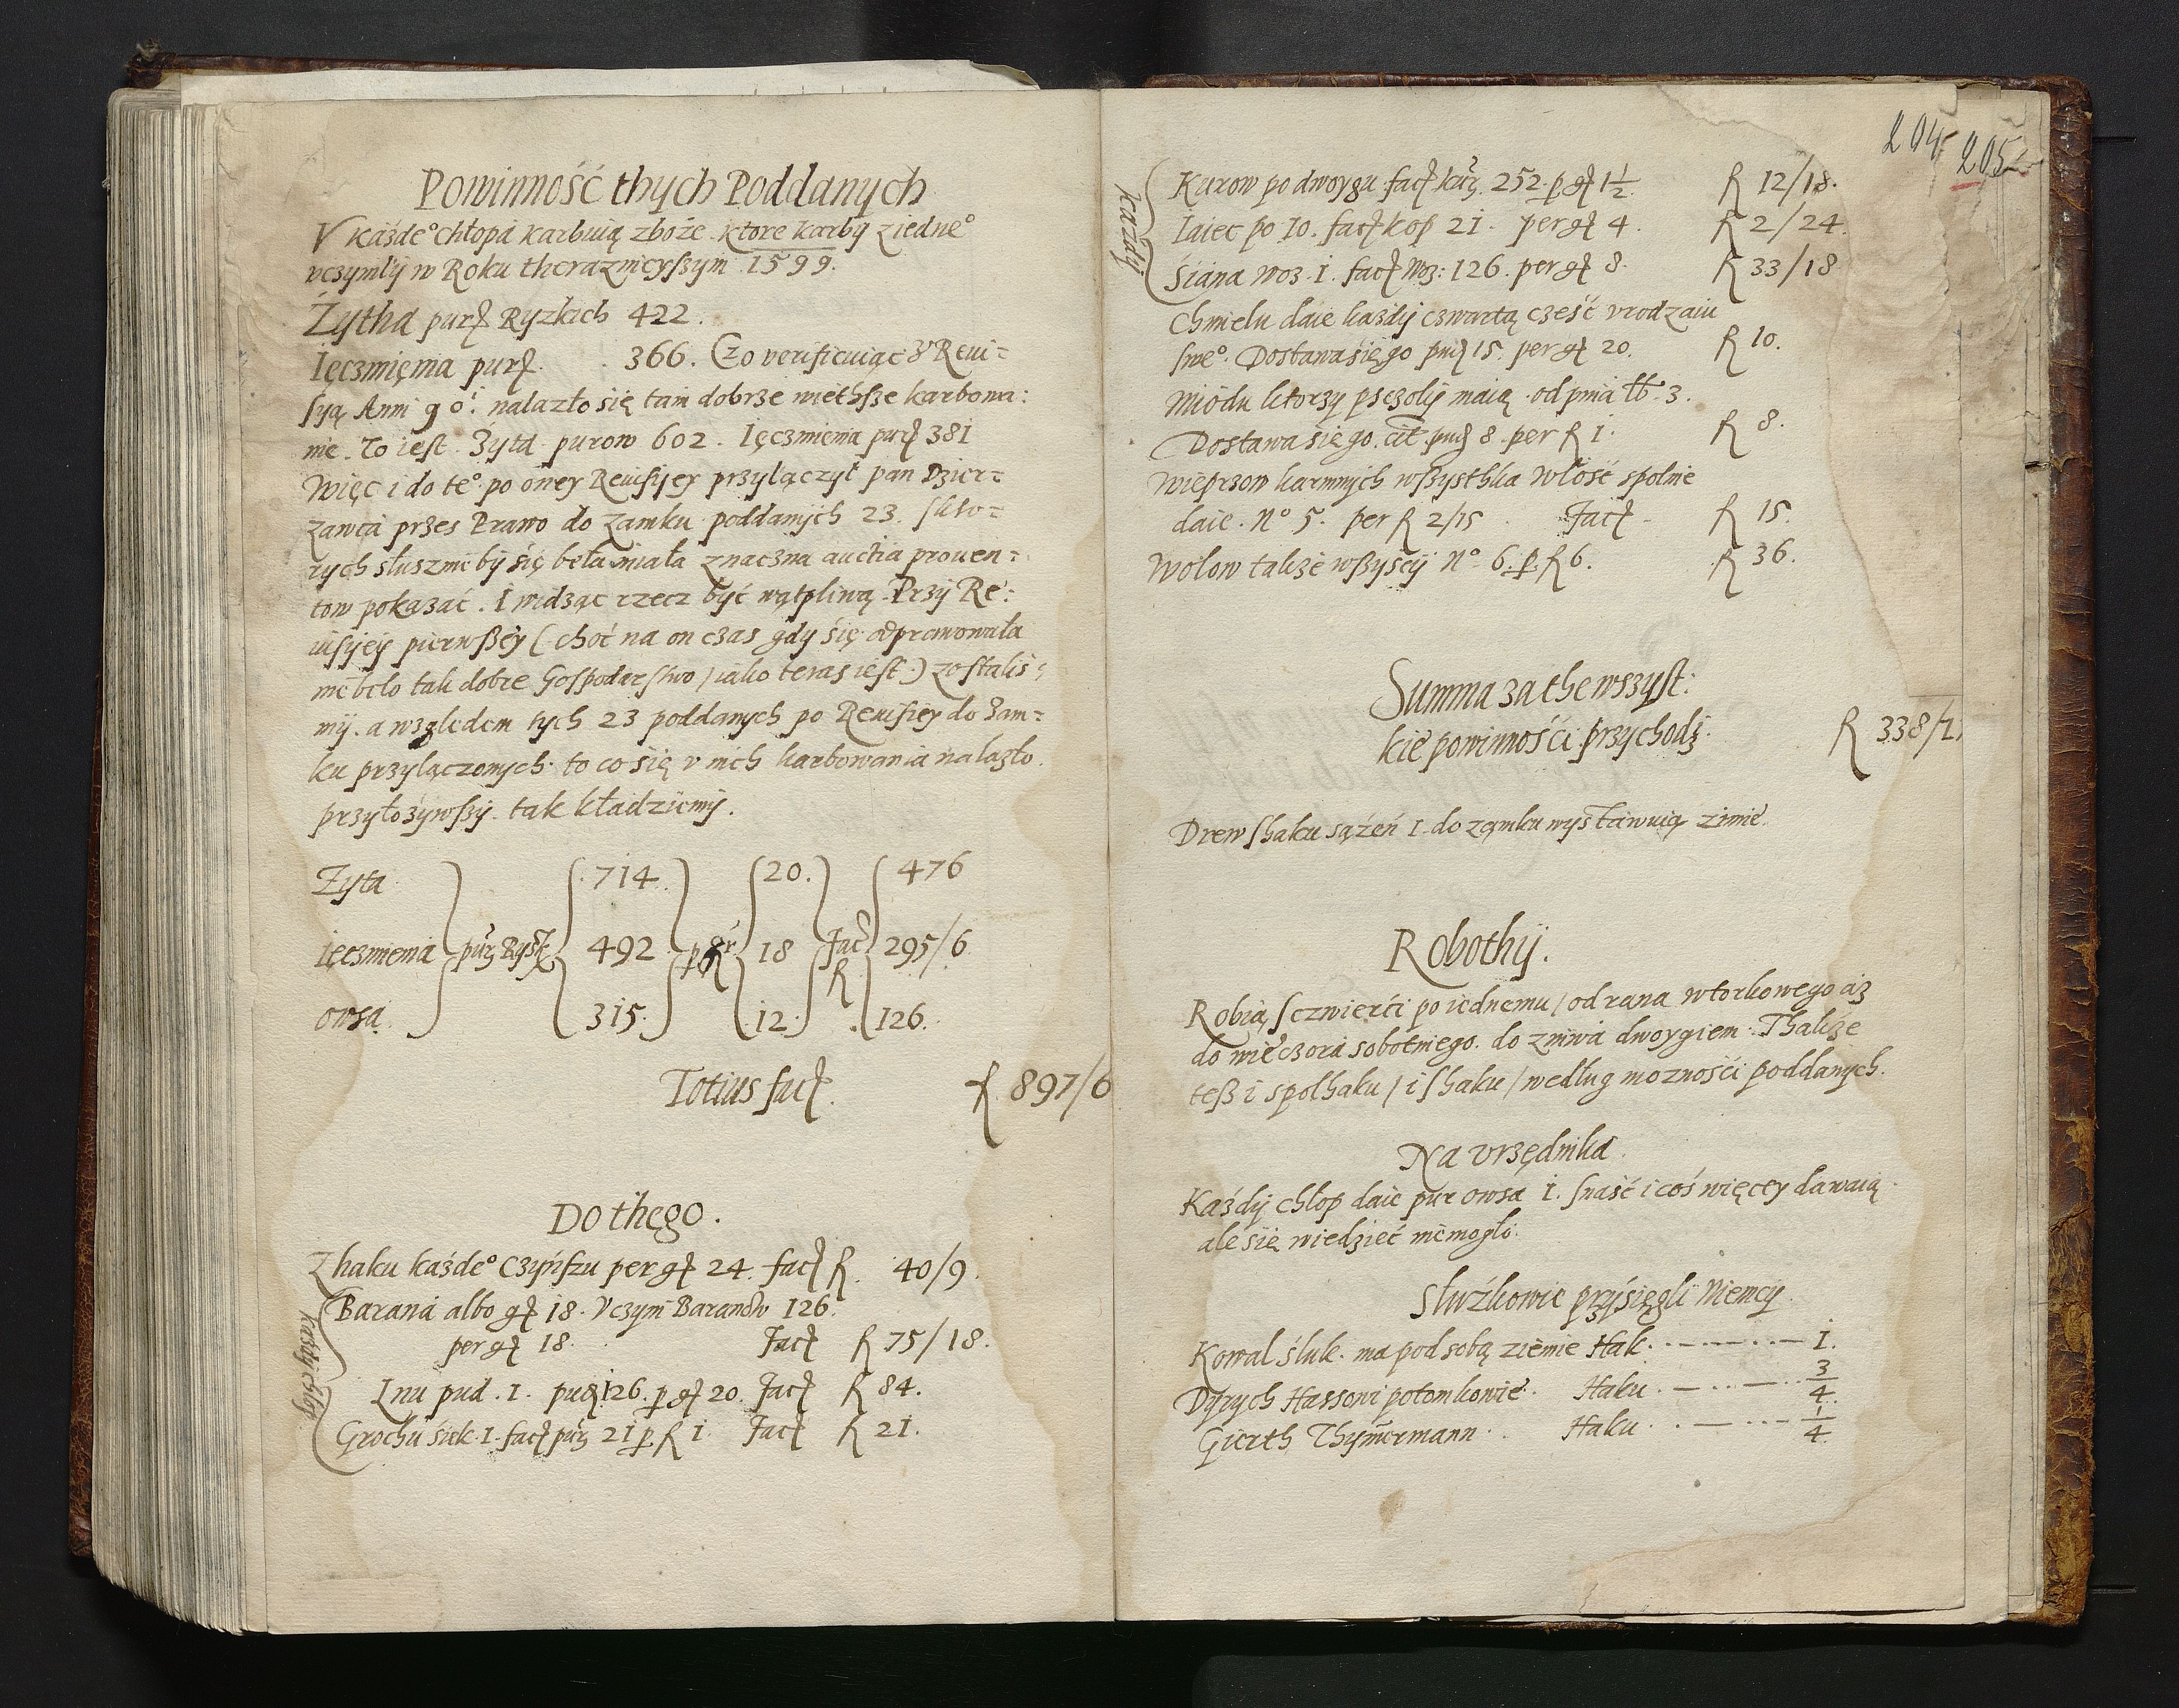 Powinność thych Poddanych
V każde° chłopa karbuią zboże ktore karby ziedne°
vczymły w Roku therazmeyßym 1599.
Żytha purꝭ Ryzkich 422.
Ięczmięnia purꝭ. 366. Czo verificuiąc z Reui=
syą Anni 90. nalazło się tam dobrze wiethsze karbowa:
nie. To iest. Żyta purow 602. Ięczmienia purꝭ 381
Więc i do te° po oney Reuisijey przyłączył pan Dzier=
zawca przes Prawo do Zamku poddanych 23. skto=
rych słuszmi by się beła miała znaczna auctia prouen=
tow pokazać. I widząc rzecz być wątpliwą. Przy Re:
uisijey pierwßey (choć na on czas gdy się odprawowała
niebeło tak dobre Gospodarstwo / iako teras iest.) zostaliś=
my. a względem tych 23 poddanych po Reuisiey do Zam=
ku przyłączonych. to co się v nich karbowania nalazło.
przyłożywßy. tak kładziemy.
Żyta 714. 20. 476
Ięczmienia purꝫ Ryskꝭ 492 per gr 18 facꝭ R 295/6
owsa 315. 12. 126.
Totius facꝭ. R 897/6
Do thego.
Z haku każde° Czynszu per gꝭ 24. facꝭ R. 40/9.
każdy chłop
Barana albo gꝭ 18. Vczym Baranów 126.
per gꝭ 18. Facꝭ R 75/18.
Lnu pud. 1. pudꝭ 126. p gꝭ 20. Facꝭ R 84.
Grochu siek. 1. facꝭ purꝫ 21 p. R 1. Facꝭ R 21.
204 205
każdy
Kurow po dwoygu. facꝭ kurꝫ. 252. p gꝭ 1½. R 12/18.
Iaiec po 10. facꝭ kop 21. per gꝭ 4. R 2/24.
Siana woz. 1. facꝭ Woz: 126. per gꝭ 8. R 33/18
Chmelu daie każdy czwartą cześć vrodzaiu
swe°. Dostawa się go pudꝭ 15. per gꝭ 20. R 10.
Miodu ktorzy psczoły maią. od pnia ℔. 3.
Dostawa się go. cit. pudꝭ 8. per R 1. R 8.
Wieprzow karmnych wßysthka Włość spolnie
daie. N° 5. per R 2/15. Facꝭ R 15.
Wolow takze wßyscy N° 6. p. R 6. R 36.
Summa za the wszyst:
kie powinności przychodz. R 338/1.
Drew s haku sążeń 1. do zamku wystawuią zimie.
Robothy.
Robią s czwierci po iednemu / od rana wtorkowego aż
do wieczora sobotniego. do zniwa dwoygiem. Thakze
teß i spolhaku / i s haku / według moznosci poddanych.
Na vrzędnika.
Każdy chłop daie pur owsa 1. snaść i coś więcey dawaią.
ale się wiedzieć niemogło.
Służkowie przysięgli Niemcy.
Kowal śluk. ma pod sobą ziemie Hak. 1.
Dyrych Hassowi potomkowie. Haku. ¾.
Gierth Thymmermann. Haku. ¼.